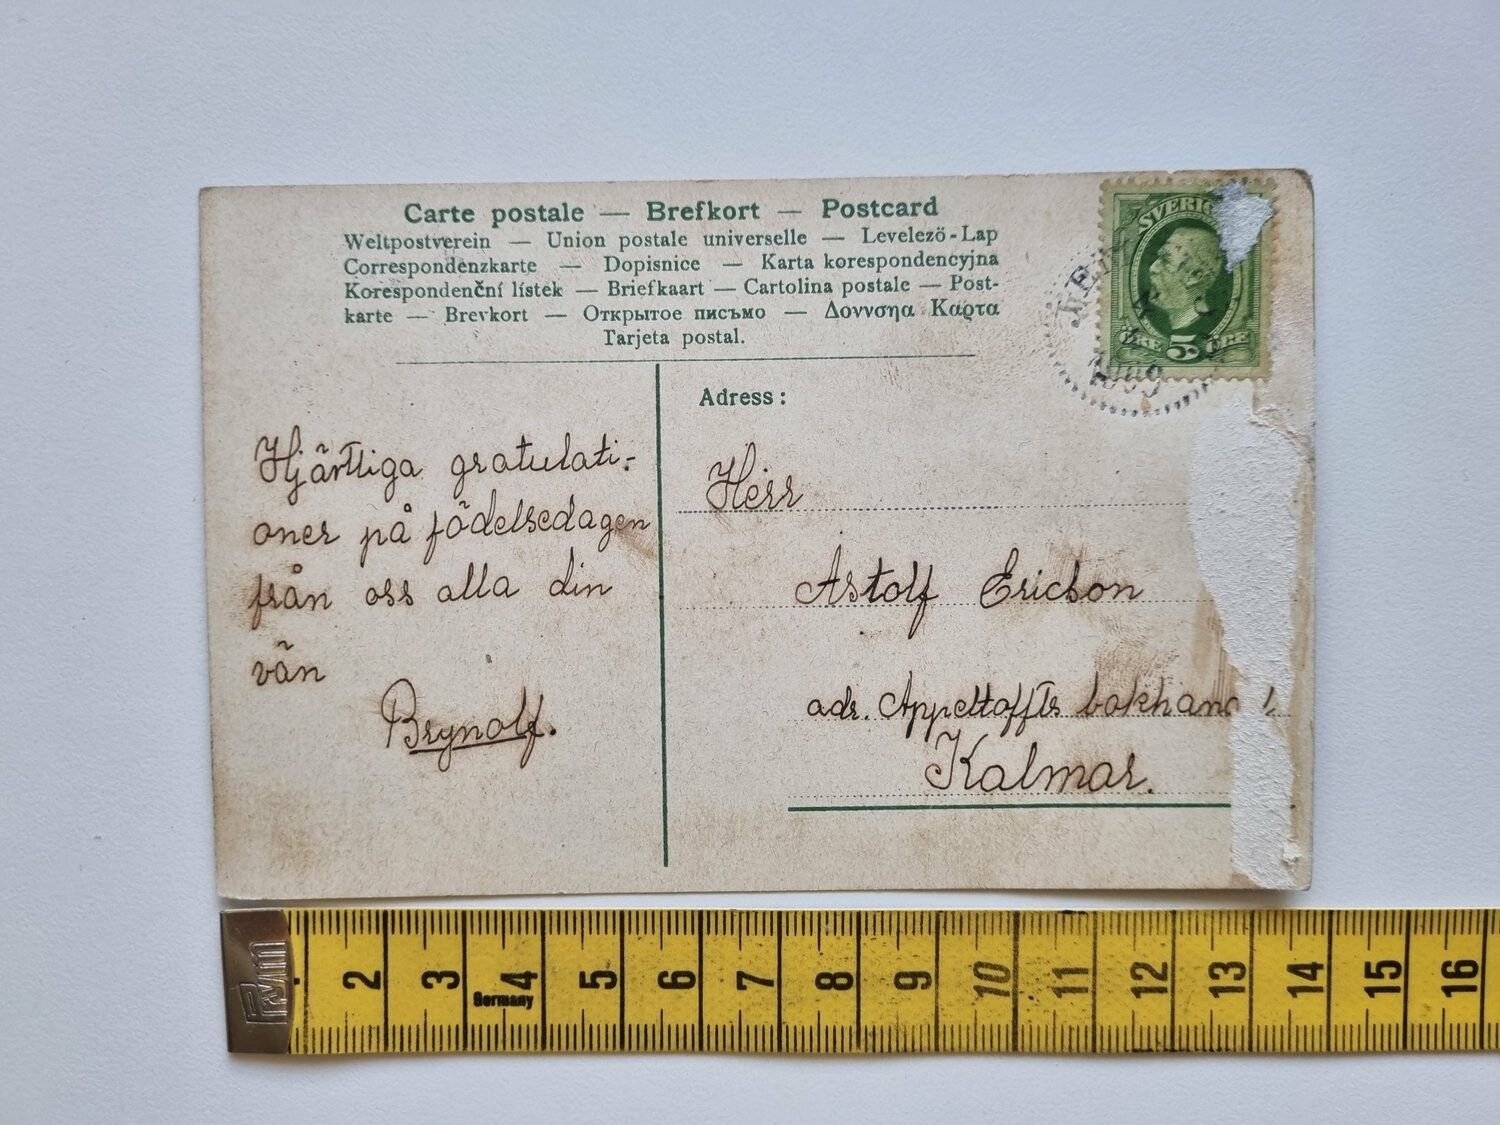 Carte postale — Brefkort — Postcard
Weltpostverein — Union postale universelle — Levelező-Lap
Correspondenzkarte — Dopisnice — Karta korespondencyjna
Korespondenční lístek — Briefkaart — Cartolina postale — Post-
karte — Brevkort — Открытое письмо — Δοννσηα Καρτα
Tarjeta postal.
SVERI
5
ÖRE
1909
Adress:
Hjärtliga gratulati-
oner på födelsedagen
från oss alla din
vän
Brynolf.
Herr
Astolf Ericson
adr. Appeltoffts bokhand
Kalmar.
Prym
2 3 4 5 6 7 8 9 10 11 12 13 14 15 16
Germany